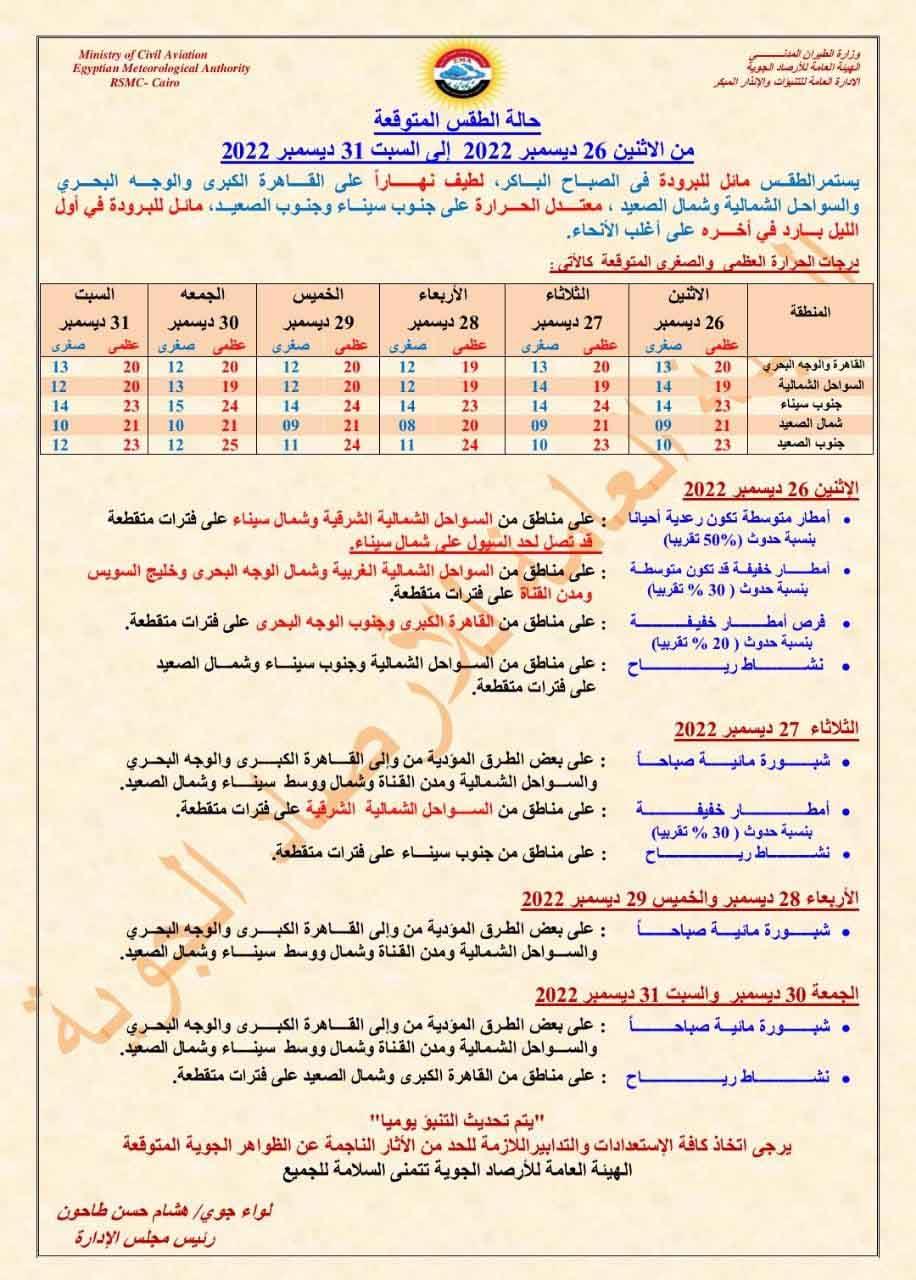 Ministry of Civil Aviation
Egyptian Meteorological Authority
RSMC- Cairo
وزارة الطيران المدنــــي
الهيئة العامة للأرصاد الجوية
الادارة العامة للتنبؤات والإنذار المبكر
حالة الطقس المتوقعة
من الاثنين 26 ديسمبر 2022 إلى السبت 31 ديسمبر 2022
يستمرالطقـس مائل للبرودة فى الصباح البـاكر، لطيف نهـــاراً على القـاهرة الكبرى والوجـه البحـري
والسواحـل الشمالية وشمال الصعيد ، معتـــدل الحـرارة على جنوب سينـاء وجنوب الصعيـد، مائـل للبرودة في أول
الليل بـــارد في أخــره على أغلب الأنحاء.
درجات الحرارة العظمى والصغرى المتوقعة كالآتى:
المنطقة الاثنين الثلاثاء الأربعاء الخميس الجمعه السبت
26 ديسمبر 27 ديسمبر 28 ديسمبر 29 ديسمبر 30 ديسمبر 31 ديسمبر
عظمى صغرى عظمى صغرى عظمى صغرى عظمى صغرى عظمى صغرى عظمى صغرى
القاهرة والوجه البحري 20 13 20 13 19 12 20 12 20 12 20 13
السواحل الشمالية 19 14 19 14 19 12 20 12 19 13 20 12
جنوب سيناء 23 14 24 14 23 14 24 14 24 15 23 14
شمال الصعيد 21 09 21 09 20 08 21 09 21 10 21 10
جنوب الصعيد 23 10 23 10 24 11 24 11 25 12 23 12
الاثنين 26 ديسمبر 2022
• أمطار متوسطة تكون رعدية أحيانا : على مناطق من السواحل الشمالية الشرقية وشمال سيناء على فترات متقطعة
بنسبة حدوث (50% تقريبا) قد تصل لحد السيول على شمال سيناء.
• أمطـــار خفيفـة قد تكون متوسطـة : على مناطق من السواحل الشمالية الغربية وشمال الوجه البحرى وخليج السويس
بنسبة حدوث ( 30 % تقريبا) ومدن القناة على فترات متقطعة.
• فرص أمطـــــار خفيفـــــة : على مناطق من القاهرة الكبرى وجنوب الوجه البحرى على فترات متقطعة.
بنسبة حدوث ( 20 % تقريبا)
• نشـــاط ريـــــــاح : على مناطق من الســـواحل الشمالية وجنوب سينـــاء وشمـــال الصعيد
على فترات متقطعة.
الثلاثاء 27 ديسمبر 2022
• شبــــورة مائيـــة صباحــــاً : على بعض الطرق المؤدية من وإلى القـــاهرة الكبــرى والوجه البحري
والســـواحل الشمالية ومدن القناة وشمال ووسط سينـــاء وشمال الصعيد.
• أمطـــــــار خفيفـــــــة : على مناطق من الســـواحل الشمالية الشرقية على فترات متقطعة.
بنسبة حدوث ( 30 % تقريبا)
• نشـــــاط ريـــــــاح : على مناطق من جنوب سينـــاء على فترات متقطعة.
الأربعاء 28 ديسمبر والخميس 29 ديسمبر 2022
• شبــــورة مائيـــة صباحــــاً : على بعض الطرق المؤدية من وإلى القـــاهرة الكبــرى والوجه البحري
والســـواحل الشمالية ومدن القناة وشمال ووسط سينـــاء وشمال الصعيد.
الجمعة 30 ديسمبر والسبت 31 ديسمبر 2022
• شبــــورة مائيـــة صباحــــاً : على بعض الطرق المؤدية من وإلى القـــاهرة الكبــرى والوجه البحري
والســـواحل الشمالية ومدن القناة وشمال ووسط سينـــاء وشمال الصعيد.
• نشـــــاط ريـــــــاح : على مناطق من القاهرة الكبرى وشمال الصعيد على فترات متقطعة.
"يتم تحديث التنبؤ يوميا"
يرجى اتخاذ كافة الإستعدادات والتدابيراللازمة للحد من الأثار الناجمة عن الظواهر الجوية المتوقعة
الهيئة العامة للأرصاد الجوية تتمنى السلامة للجميع
لواء جوي/ هشام حسن طاحون
رئيس مجلس الإدارة
الهيئة العامة للأرصاد الجوية